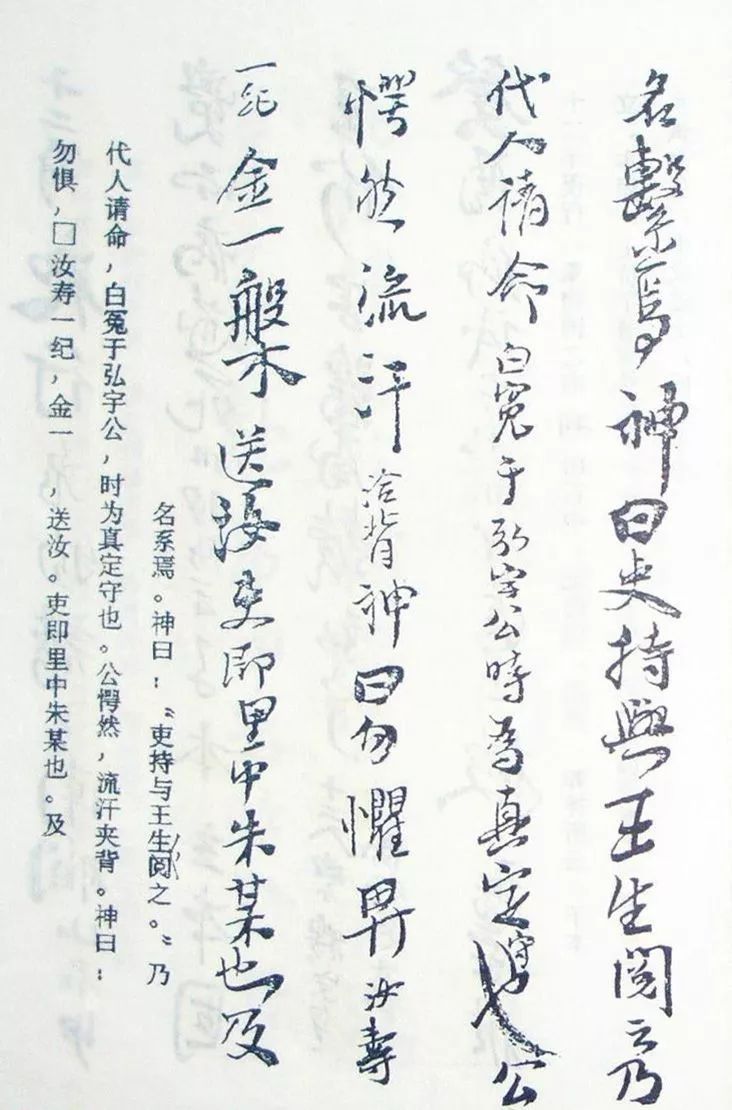 名繫焉神曰吏持與王生閲之乃
代人請命白冤于弘宇公時爲真定守也公
愕然流汗洽背神曰勿懼畀汝壽
一紀金一槃送汝吏即里中朱某也及
名系焉。神曰：“吏持与王生阅之。”乃
代人请命，白冤于弘宇公，时为真定守也。公愕然，流汗夹背。神曰：
勿惧，□汝寿一纪，金一　，送汝。吏即里中朱某也。及